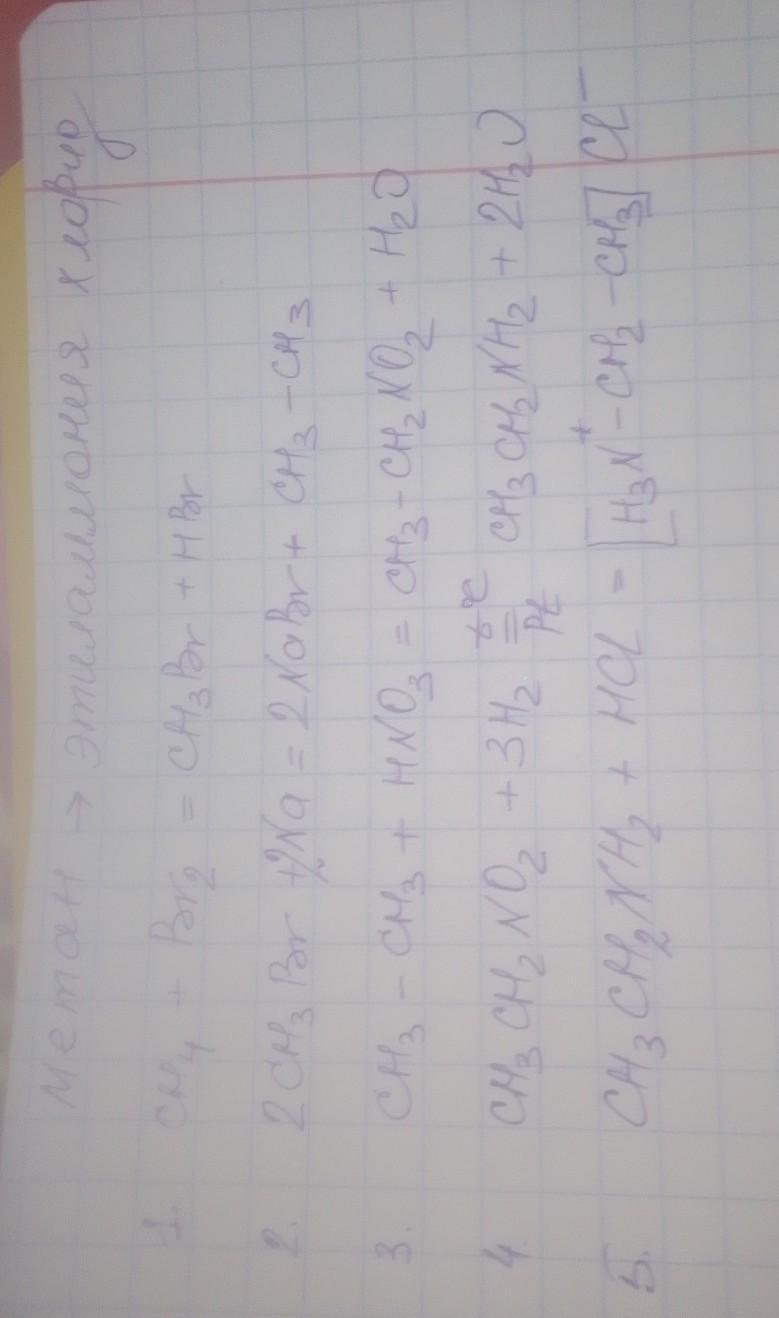 Метан → этиламмония хлорид
1. CH₄ + Br₂ = CH₃Br + HBr
2. 2CH₃Br + 2Na = 2NaBr + CH₃-CH₃
3. CH₃-CH₃ + HNO₃ = CH₃-CH₂NO₂ + H₂O
4. CH₃CH₂NO₂ + 3H₂ =(t°C, Pt) CH₃CH₂NH₂ + 2H₂O
5. CH₃CH₂NH₂ + HCl = [H₃N⁺-CH₂-CH₃]Cl⁻